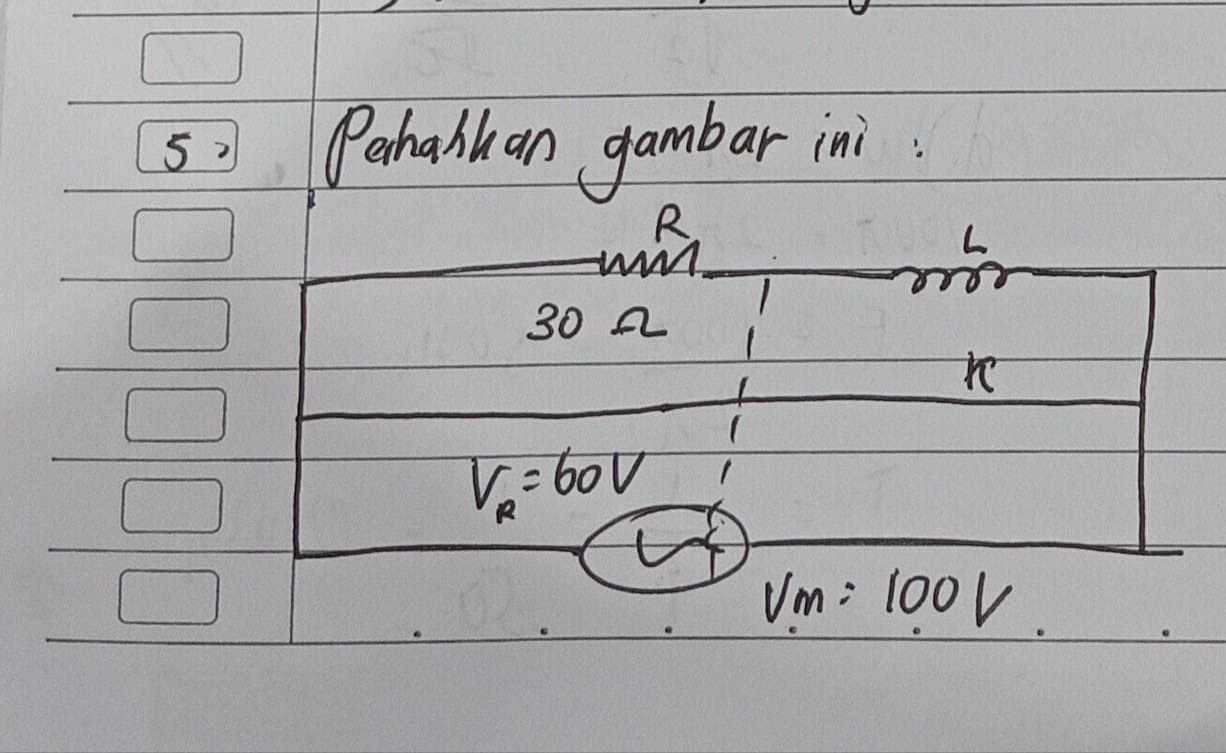 5)
Perhahkan gambar ini :
R
L
30 Ω
K
V_R = 60 V
Vm = 100 V